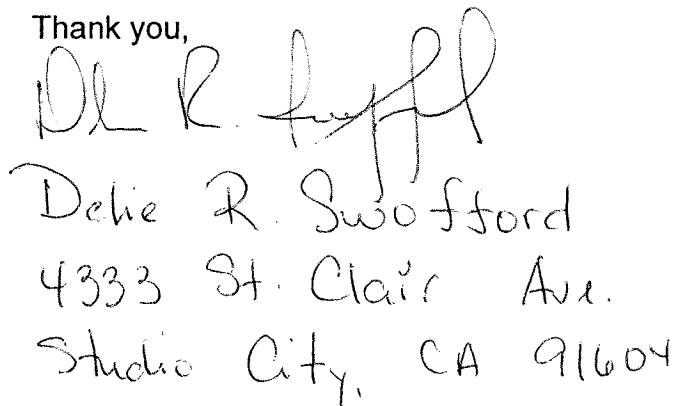 Thank you,
R.
R. Swofford
4333 St. Clair Ave.
Studio City, CA 91604